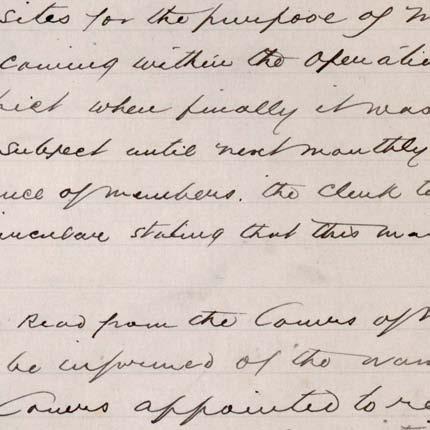 sites for the purpose of
coming within the Operatio
rict when finally it was
subject until next monthly
nce of members. the Clerk to
ircular stating that this ma
Read from the Comrs of
be informed of the nam
Comrs appointed to re